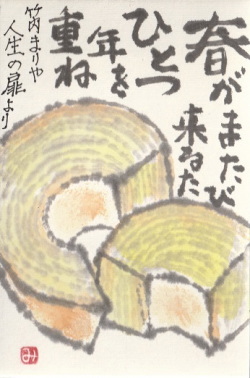 春がまたび
来るた
ひとつ
年を
重ね
竹内まりや
人生の扉より
み